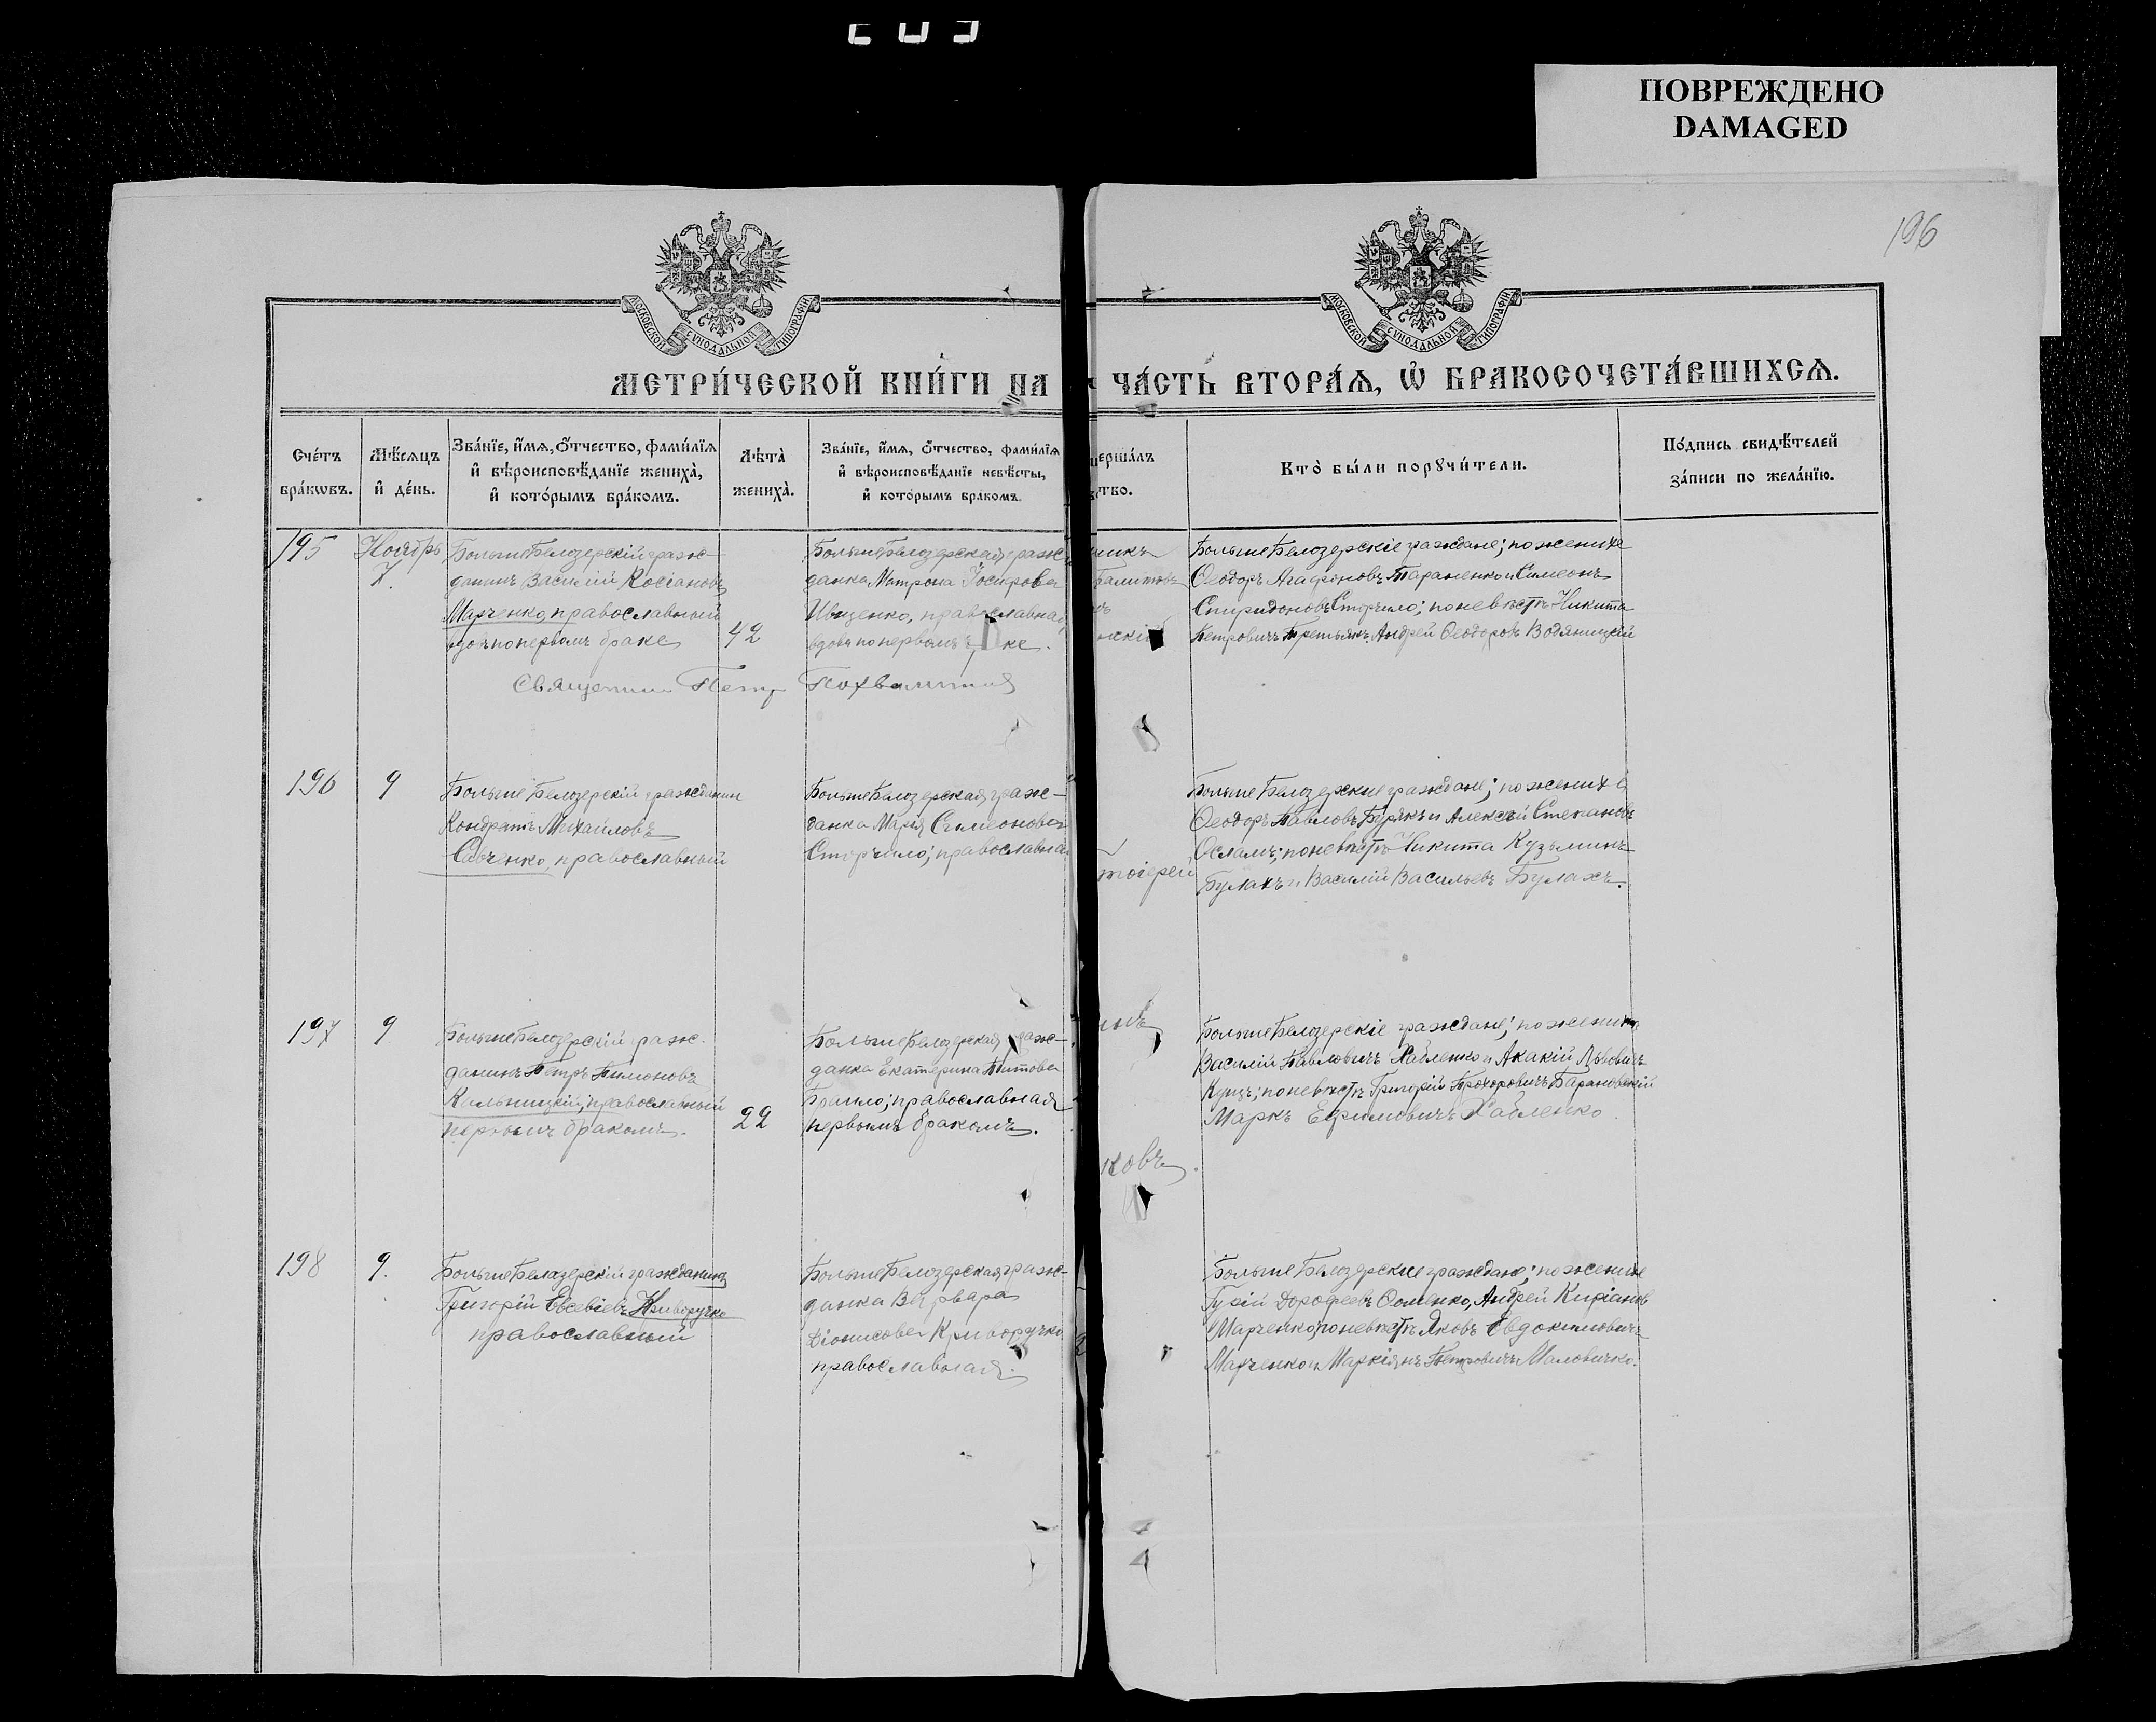 ПОВРЕЖДЕНО
DAMAGED
196
МОСКОВСКОЙ СѴНОДАЛЬНОЙ ТИПОГРАФІИ
МОСКОВСКОЙ СѴНОДАЛЬНОЙ ТИПОГРАФІИ
МЕТРИ́ЧЕСКОЙ КНИ́ГИ НА
ЧА́СТЬ ВТОРА́Я, Ѡ҆ БРАКОСОЧЕТА́ВШИХСЯ.
Сче́тъ
бра́кѡвъ.
Мѣ́сяцъ
и҆ де́нь.
Зва́нїе, и҆́мя, ѻ҆́тчество, фами́лїя
и҆ вѣроисповѣ́данїе жениха̀,
и҆ кото́рымъ бра́комъ.
Лѣта̀
жениха̀.
Зва́нїе, и҆́мя, ѻ҆́тчество, фами́лїя
и҆ вѣроисповѣ́данїе невѣ́сты,
и҆ кото́рымъ бра́комъ.
ерша́лъ
тво.
Кто̀ бы́ли порꙋчи́тели.
По́дпись свидѣ́телей
за́писи по жела́нїю.
195
Ноябрь
7.
БольшеБелозерскій граж-
данинъ Василій Косіановъ
Марченко, православный
вдовъ по первомъ браке
42
БольшеБелозерская граж
данка Матрона Іосифова
Ивценко, православная
вдова по первомъ ке.
Священник Петр Похвалитов
никъ
БольшеБелозерскіе граждане; по женихе
Ѳеодоръ Агафоновъ Тараненко и Симеонъ
Спиридоновъ Сторчило; по невѣстѣ Никита
Петровичъ Третьякъ, Андрей Ѳеодоровъ Водяницкій
196
9
БольшеБелозерскій гражданин
Кондратъ Михайловъ
Савченко, православный
БольшеБелозерская граж-
данка Марія Симеонова
Сторчило; православная
тоіерей
БольшеБелозерские граждане; по жених
Ѳеодоръ Павловъ Бурякъ и Алексѣй Степановъ
Осламъ; по невѣстѣ Никита Кузьминъ
Булахъ и Василій Васильевъ Булахъ.
197
9
БольшеБелозерскій граж-
данинъ Петръ Пимоновъ
Кальницкій; православный
первымъ бракомъ.
22
БольшеБелозерская граж-
данка Екатерина Титова
православная
первымъ бракомъ.
ковъ
БольшеБелозерскіе граждане; по женихе
Василій Павловичъ Хавленко и Акакій Львовичъ
Куцъ; по невѣстѣ Григорій Прохоровичъ Барановскій
Маркъ Ефимовичъ Хавленко.
198
9.
БольшеБелазерскій гражданинъ
Григорій Евсевіевъ Криворучко
православный
БольшеБелозерская граж-
данка Варвара
Діонисова Криворучко
православная.
БольшеБелозерские граждане; по женихе
Гурій Дорофеевъ Соменко, Андрей Кипріановъ
Марченко; по невѣстѣ Яковъ Евдокимовичъ
Марченко и Маркіянъ Петровичъ Маловичко.